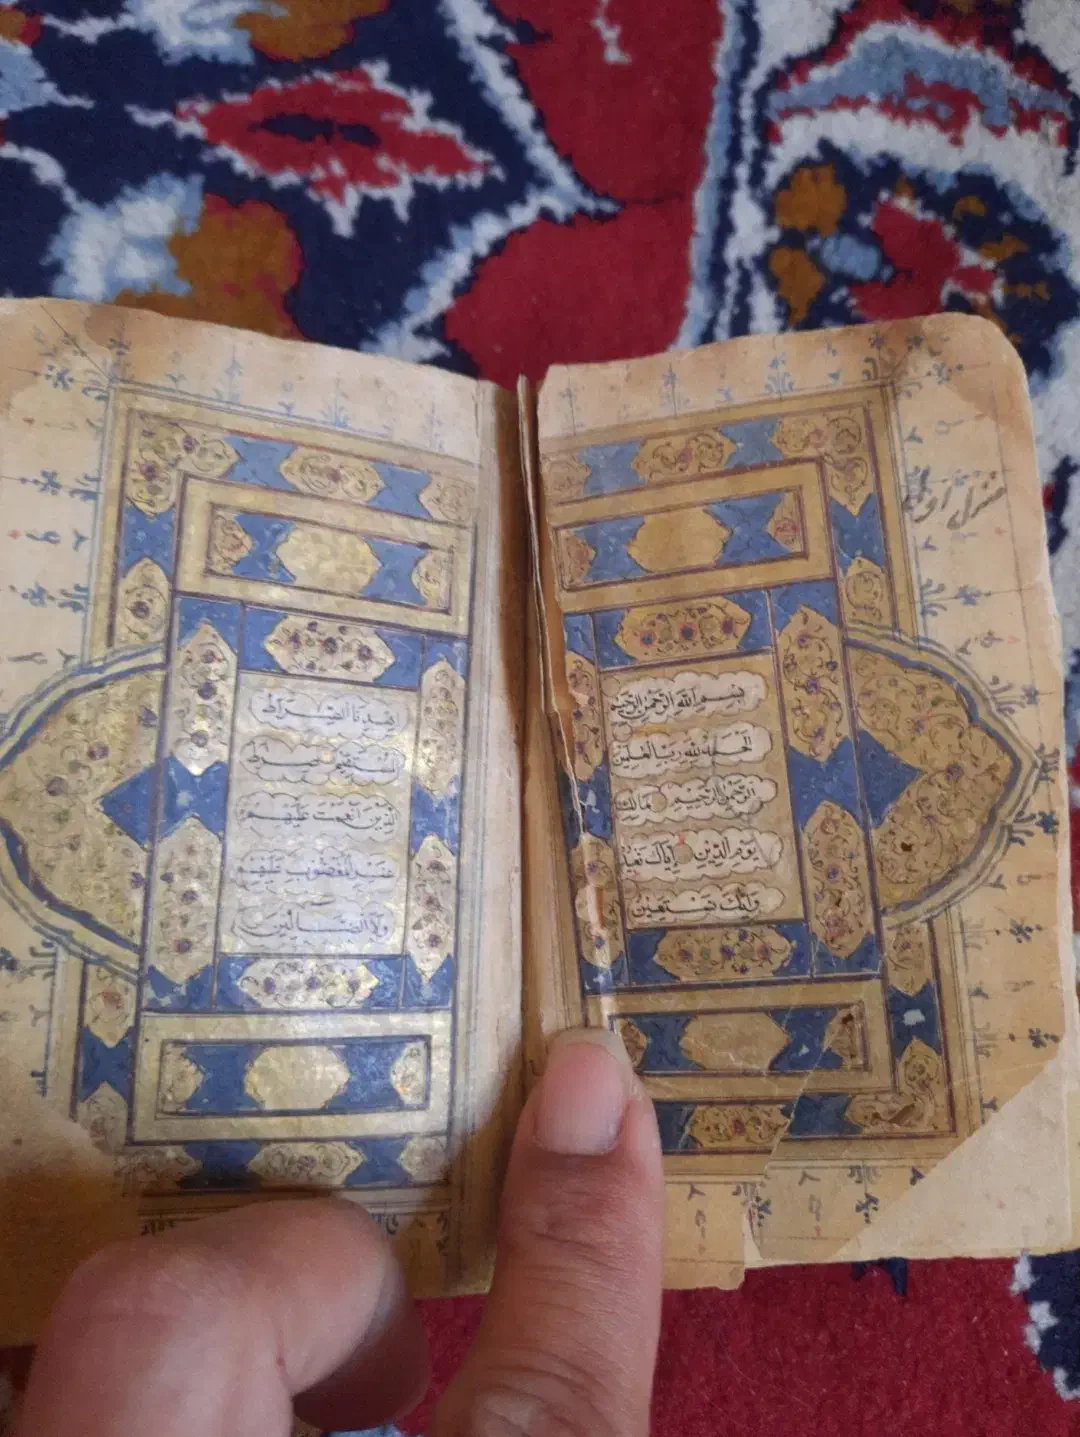 بِسْمِ اللهِ الرَّحْمٰنِ الرَّحِيمِ
اَلْحَمْدُ لِلّٰهِ رَبِّ الْعٰلَمِينَ
اَلرَّحْمٰنِ الرَّحِيمِ مَالِكِ
يَوْمِ الدِّينِ اِيَّاكَ نَعْبُدُ
وَاِيَّاكَ نَسْتَعِينُ
اِهْدِنَا الصِّرَاطَ
الْمُسْتَقِيمَ صِرَاطَ
الَّذِينَ اَنْعَمْتَ عَلَيْهِمْ
غَيْرِ الْمَغْضُوبِ عَلَيْهِمْ
وَلَا الضَّالِّينَ
منزل اول